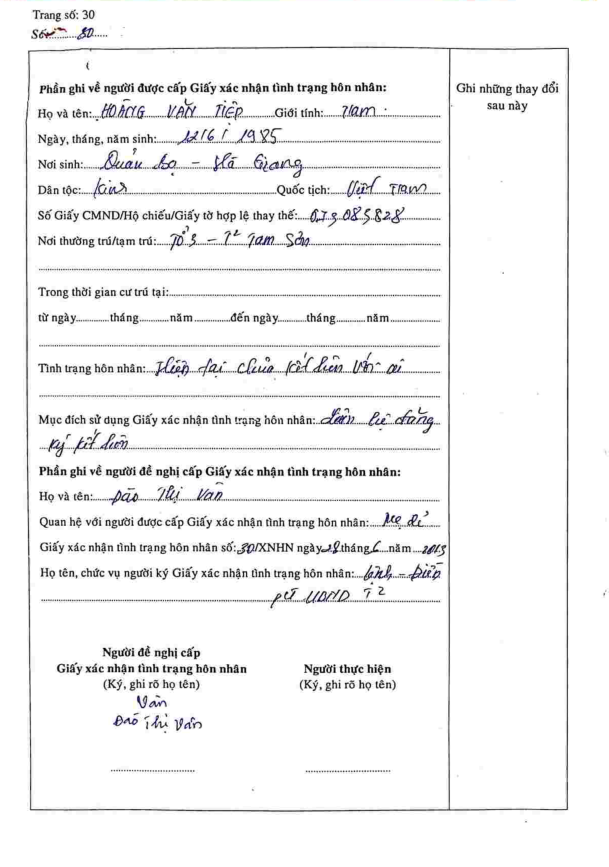 Trang số: 30
Số: 30
Phần ghi về người được cấp Giấy xác nhận tình trạng hôn nhân:
Ghi những thay đổi
sau này
Họ và tên: HOÀNG VĂN TIỆP Giới tính: Nam
Ngày, tháng, năm sinh: 12/6/1985
Nơi sinh: Quản Bạ - Hà Giang
Dân tộc: Kinh Quốc tịch: Việt Nam
Số Giấy CMND/Hộ chiếu/Giấy tờ hợp lệ thay thế: 073085828
Nơi thường trú/tạm trú: Tổ 3 - T² Tam Sơn
Trong thời gian cư trú tại:
từ ngày tháng năm đến ngày tháng năm
Tình trạng hôn nhân: Hiện tại chưa kết hôn với ai
Mục đích sử dụng Giấy xác nhận tình trạng hôn nhân: Làm thủ đăng
ký kết hôn
Phần ghi về người đề nghị cấp Giấy xác nhận tình trạng hôn nhân:
Họ và tên: Đào Thị Vân
Quan hệ với người được cấp Giấy xác nhận tình trạng hôn nhân: Mẹ đẻ
Giấy xác nhận tình trạng hôn nhân số: 30/XNHN ngày 28 tháng 6 năm 2013
Họ tên, chức vụ người ký Giấy xác nhận tình trạng hôn nhân:
PCT UBND T²
Người đề nghị cấp
Giấy xác nhận tình trạng hôn nhân
(Ký, ghi rõ họ tên)
Người thực hiện
(Ký, ghi rõ họ tên)
Vân
Đào Thị Vân